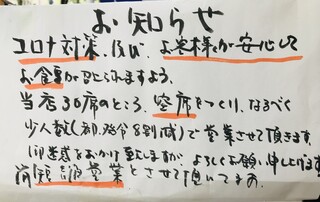 お知らせ
コロナ対策、及び、お客様が安心して
お食事がとられますよう、
当店30席のところ、空席をつくり、なるべく
少人数(約8割減)で営業させて頂きます。
ご迷惑をおかけ致しますが、よろしくお願い申し上げます
営業とさせて頂いてます。